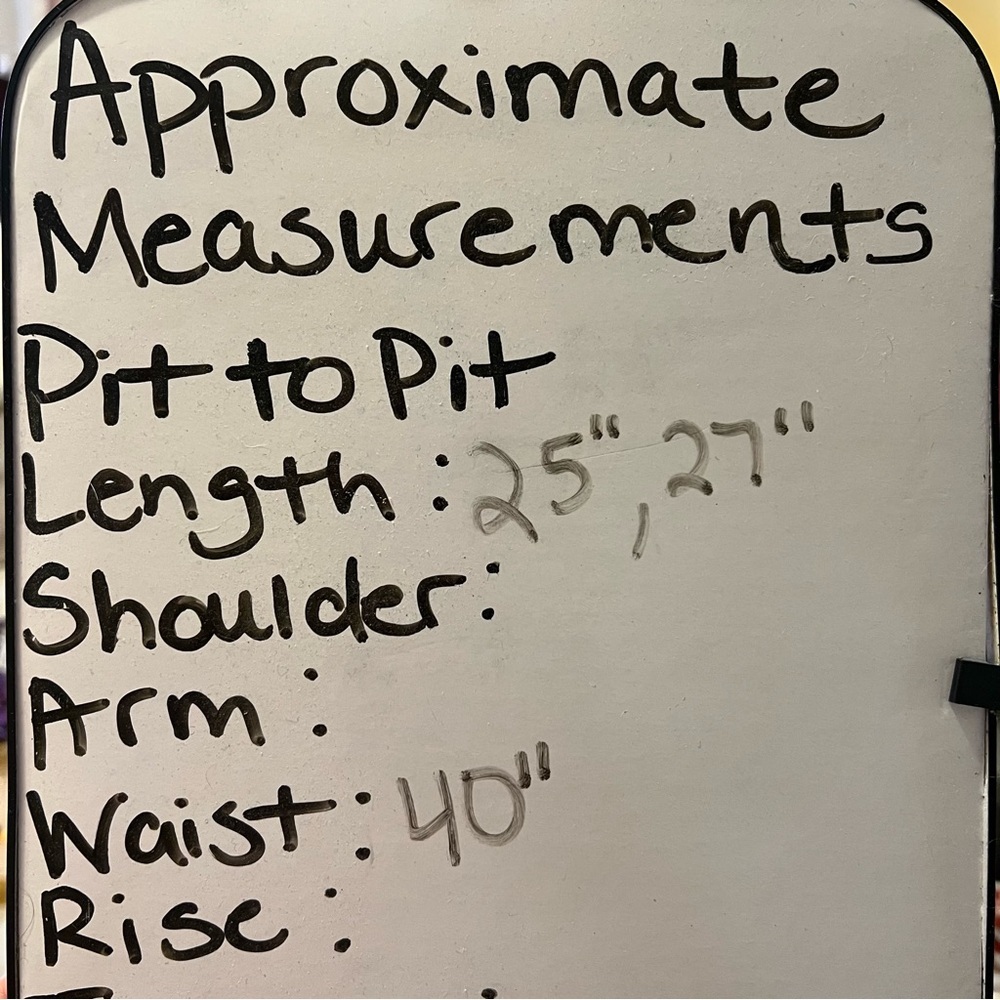 Approximate
Measurements
Pit to Pit
Length: 25", 27"
Shoulder:
Arm:
Waist: 40"
Rise: